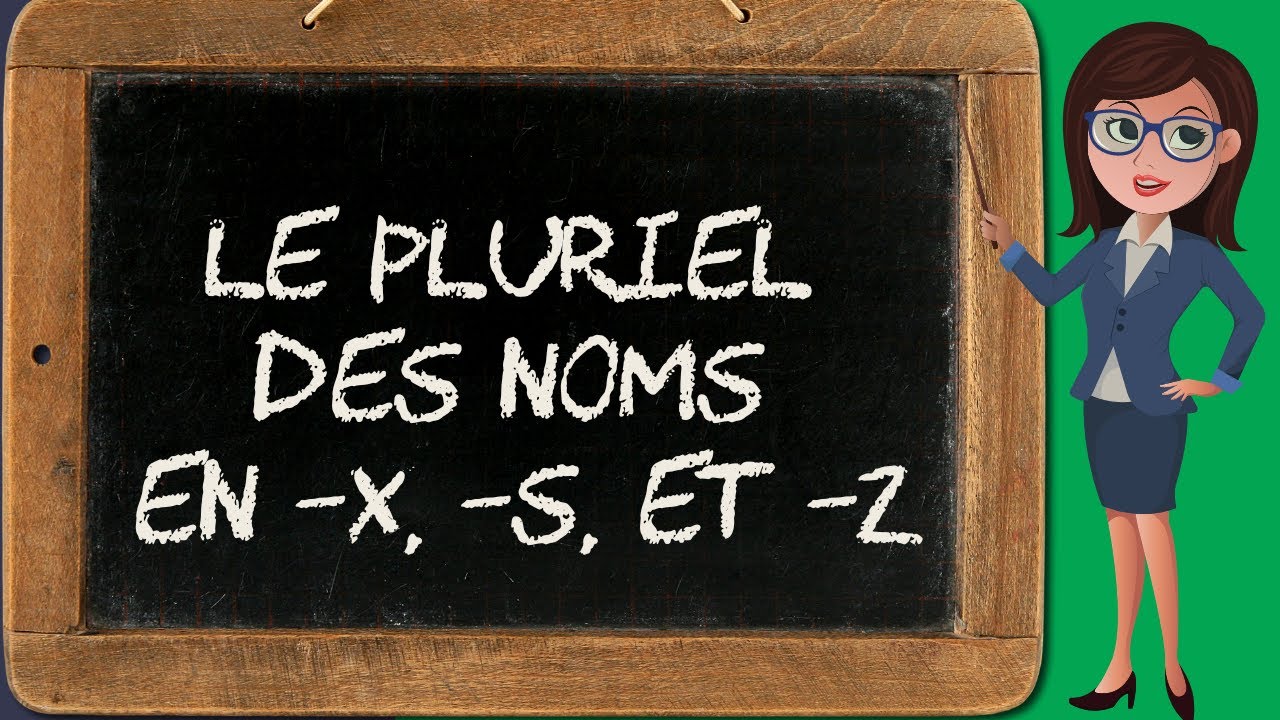 LE PLURIEL
DES NOMS
EN -X, -S, ET -Z